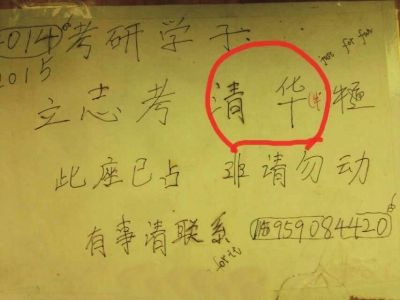 2014考研学子
2015
立志考清华
此座已占 非请勿动
有事请联系 15959084420
for it